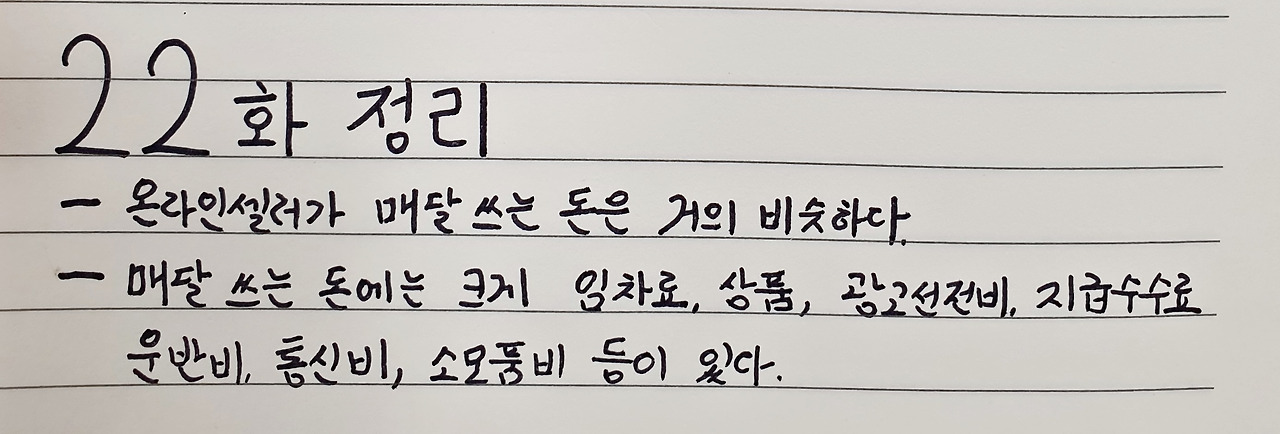 22화 정리
- 온라인셀러가 매달 쓰는 돈은 거의 비슷하다.
- 매달 쓰는 돈에는 크게 임차료, 상품, 광고선전비, 지급수수료
운반비, 통신비, 소모품비 등이 있다.